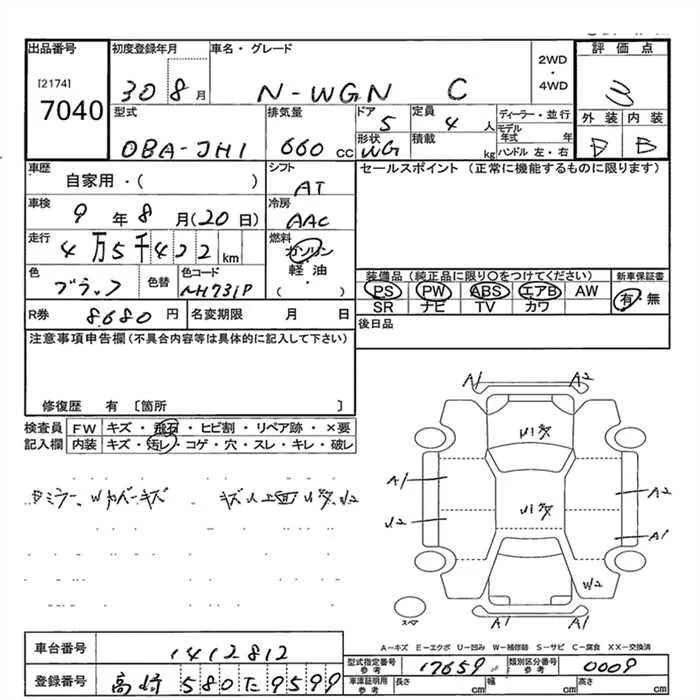 出品番号 初度登録年月 車名・グレード 2WD・4WD 評価点
[2174]
7040 30 8月 N-WGN C 3
型式 排気量 ドア 定員 ディーラー・並行 外装 内装
DBA-JH1 660 CC 5 4人 モデル年式 年
形状 積載 ハンドル 左・右
WG kg B
車歴 シフト セールスポイント (正常に機能するものに限ります)
自家用・( ) AT
車検 冷房
9年8月(20日) AAC
走行 燃料
4万5千422km ガソリン
軽・油
( )
色 色替 色コード 装備品(純正品に限り〇をつけてください) 新車保証書
ブラック NH731P PS PW ABS エアB AW 有・無
SR ナビ TV カワ
R券 8,680円 名変期限 月 日 後日品
注意事項申告欄(不具合内容等は具体的に記入して下さい)
修復歴 有 〔箇所 〕
検査員記入欄 FW キズ・飛石・ヒビ割・リペア跡・×要
内装 キズ・汚レ・コゲ・穴・スレ・キレ・破レ
A1 A2
A1 A2
U2 A1
W2
A1 A1
スペア
A-キズ E-エクボ U-凹み W-補修跡 S-サビ C-腐食 XX-交換済
車台番号 1412812
型式指定番号 参考 17659 類別区分番号 参考 0009
登録番号 高崎 580 た 9599
車庫証明用 参考 長さ cm 幅 cm 高さ cm